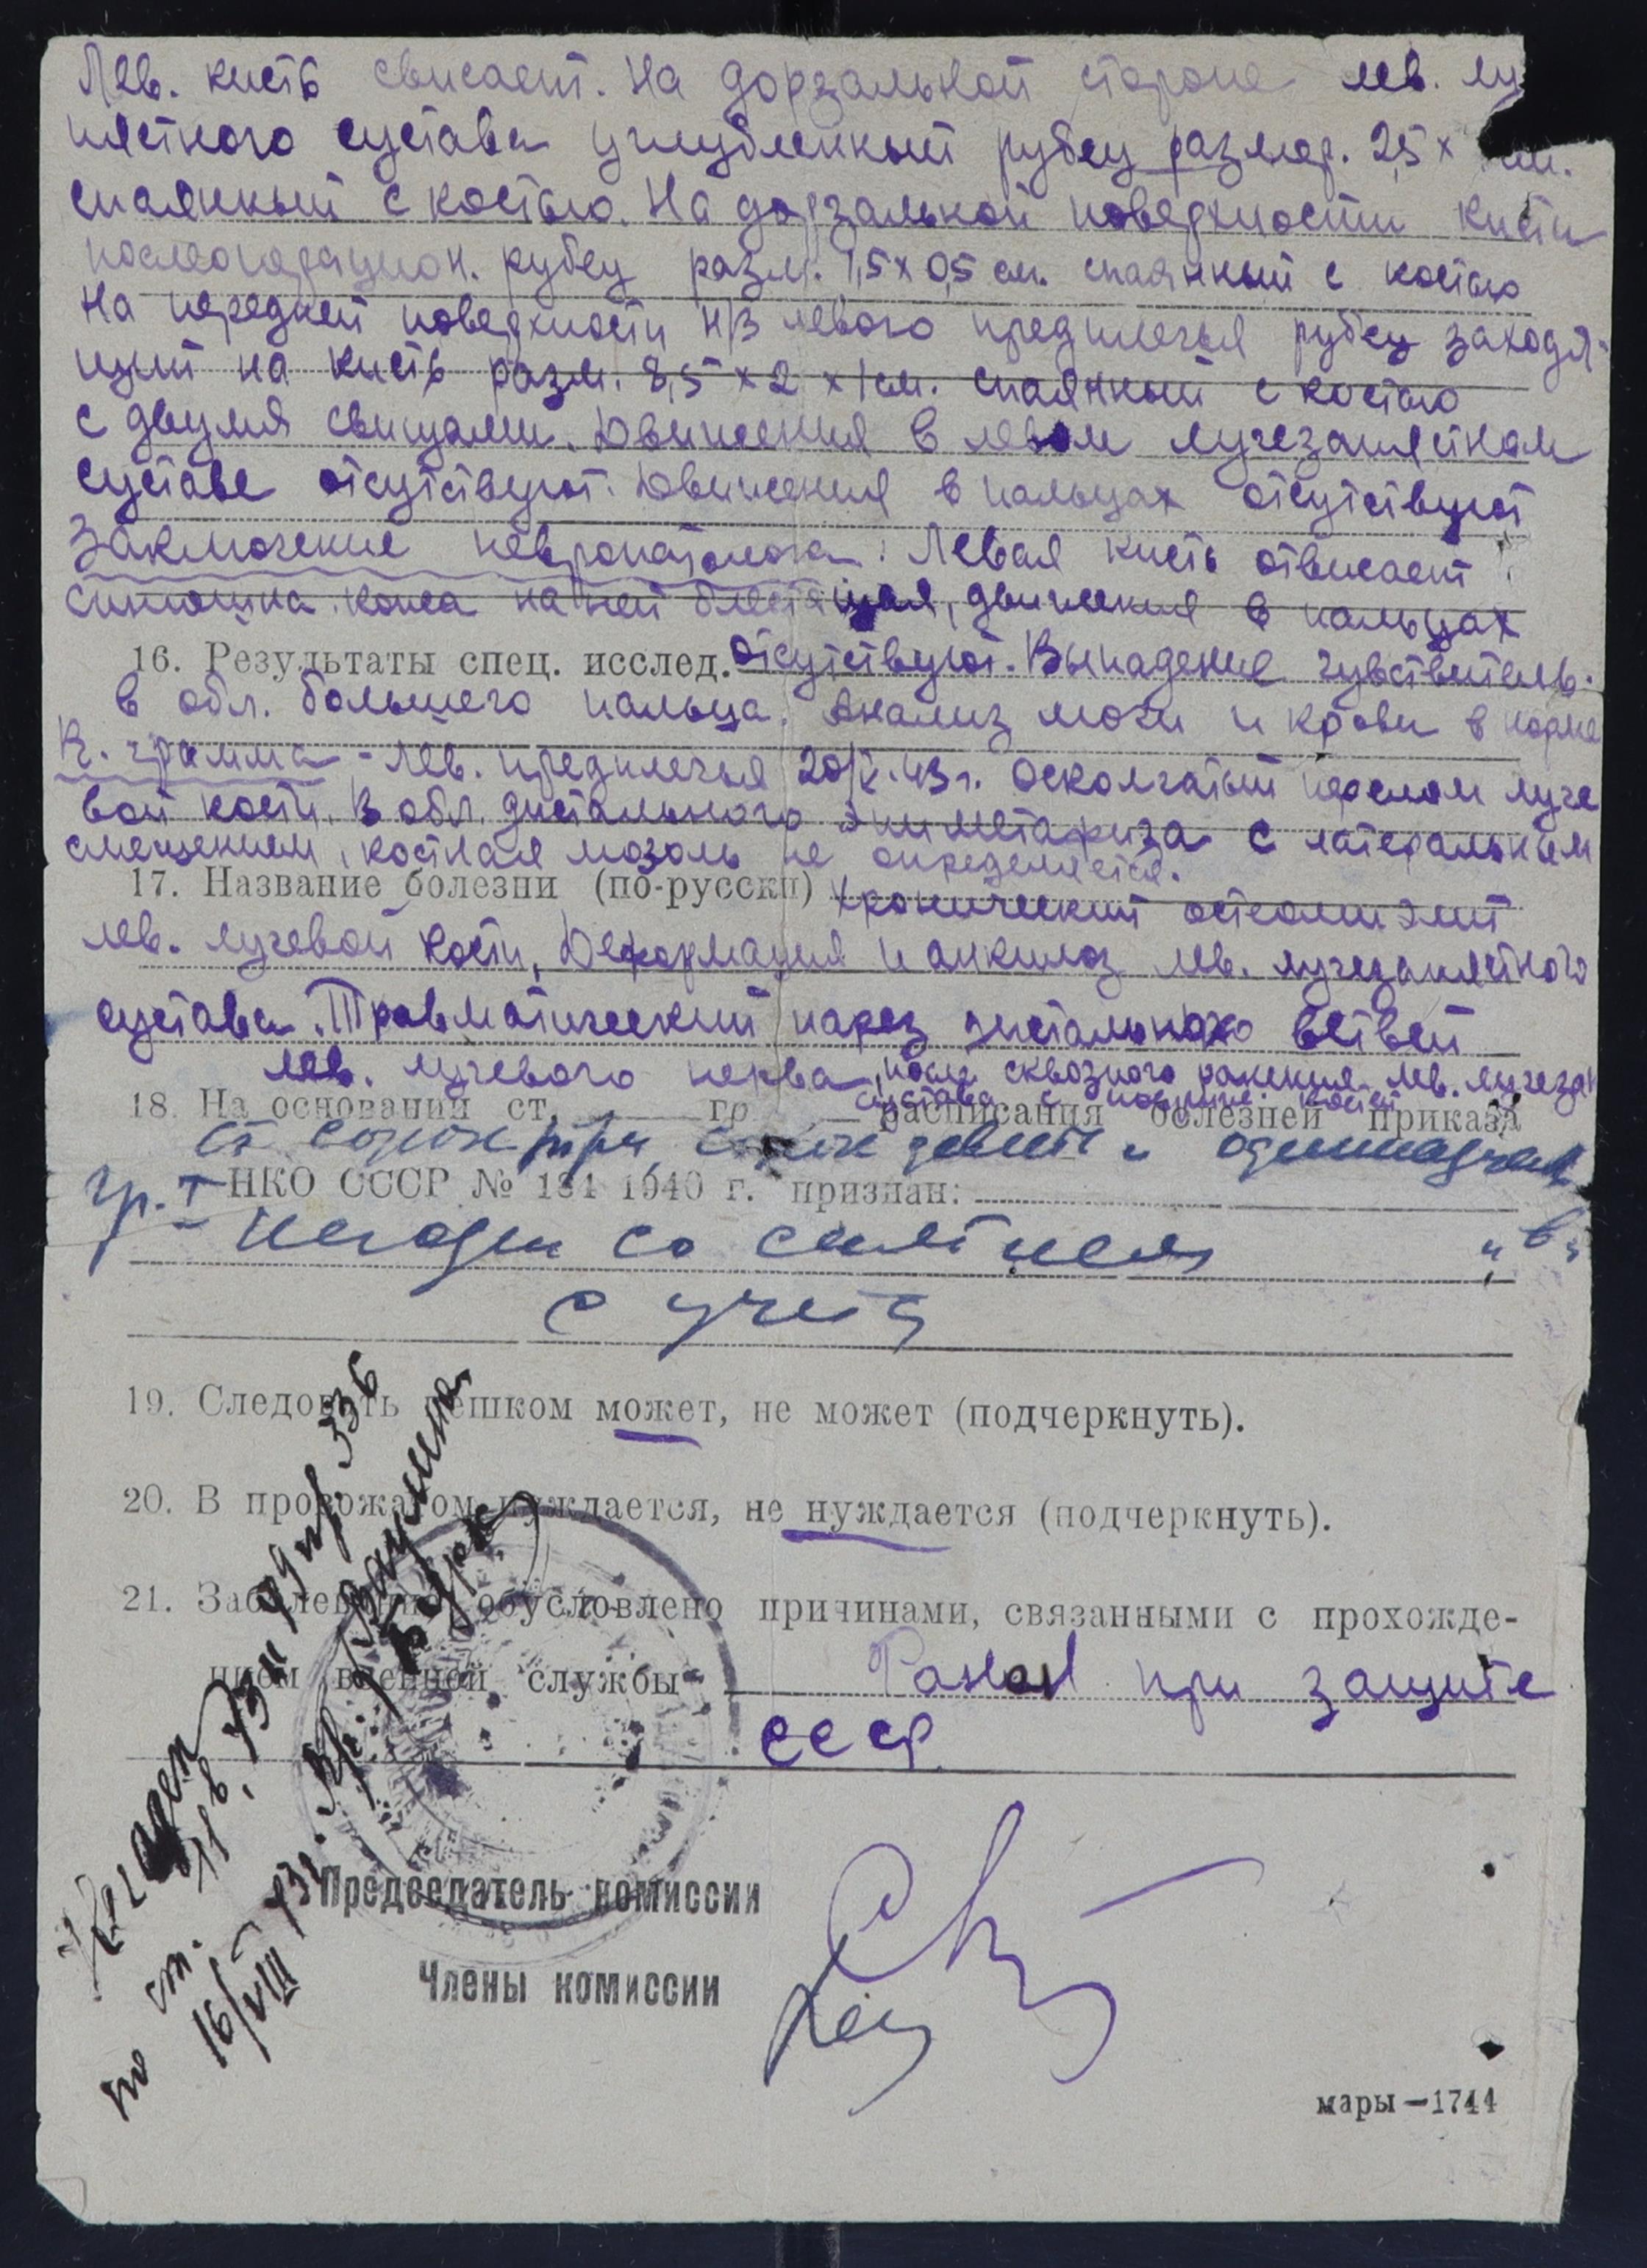 Лев. кисть свисает. На дорзальной стороне лев. лу
пястного сустава углубленный рубец размер. 2,5 x см.
спаянный с костью. На дорзальной поверхности кисти
послеоперацион. рубец разм. 1,5 x 0,5 см. спаянный с костью
На передней поверхности н/3 левого предплечья рубец заходя-
щий на кисть разм. 8,5 x 2 x 1 см. спаянный с костью
с двумя свищами. Движения в левом лучезапястном
суставе отсутствуют. Движения в пальцах отсутствуют
Заключение невропатолога: Левая кисть отвисает
синюшна. кожа на ней блестящая, движения в пальцах
16. Результаты спец. исслед. отсутствуют. Выпадение чувствитель.
в обл. большого пальца. Анализ мочи и крови в норме
R. грамма - лев. предплечья 20/V.43 г. Осколчатый перелом луче
вой кости. В обл. дистального эпиметафиза с латеральным
смещением, костная мозоль не определяется.
17. Название болезни (по-русски) Хронический остеомиэлит
лев. лучевой кости, Деформация и анкилоз лев. лучезапястного
сустава. Травматический парез дистального ветвей
лев. лучевого нерва, после сквозного ранения лев. лучезап
сустава с поврежд. костей
18. На основании ст. гр расписания болезней приказа
ст сорок три сорок девять и одиннадцать
гр. I НКО СССР № 184 1940 г. признан:
Негоден со снятием "в"
с учета
19. Следовать пешком может, не может (подчеркнуть).
20. В провожатом нуждается, не нуждается (подчеркнуть).
21. Заболевание обусловлено причинами, связанными с прохожде-
нием военной службы Ранен при защите
СССР.
Председатель комиссии
Члены комиссии
16/VIII
336
мары—1744